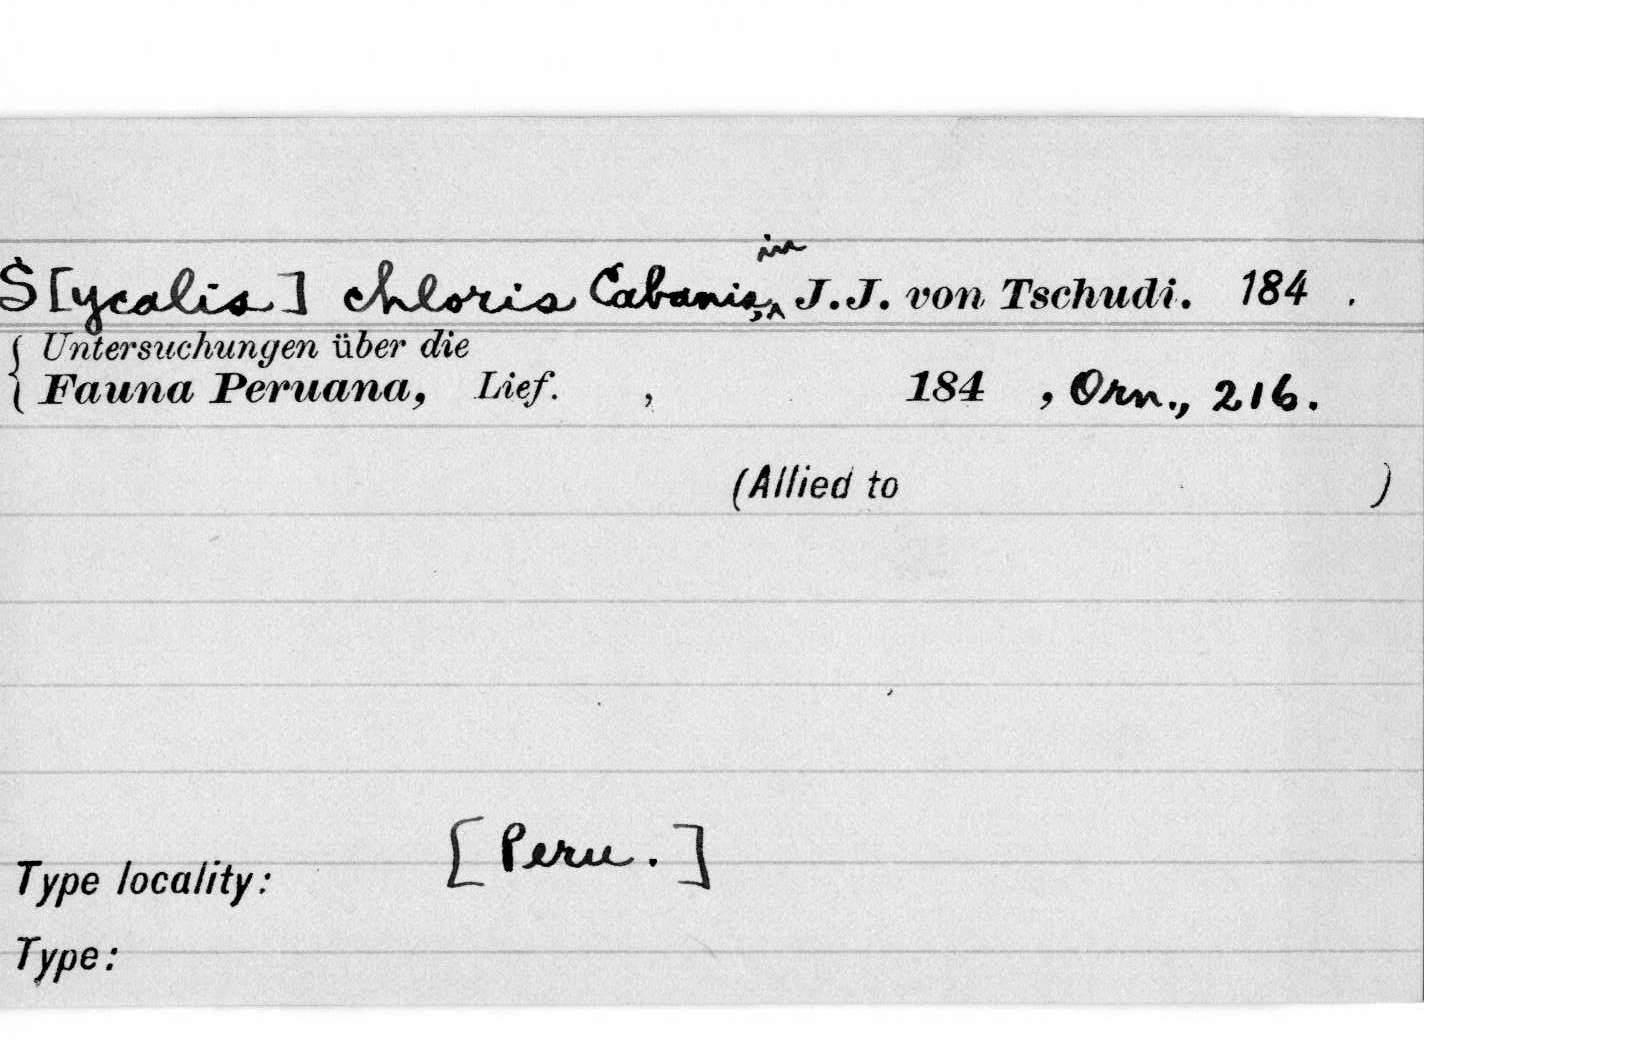 S[ycalis] chloris Cabanis, in J.J. von Tschudi. 184 .
Untersuchungen über die
Fauna Peruana, Lief. , 184 , Orn., 216.
(Allied to )
[Peru.]
Type locality:
Type: